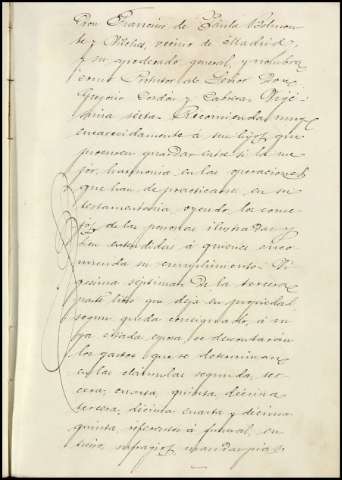 Don Francisco de Paula Belmon-
te y Vilches, vecino de Madrid,
y su apoderado general, y nombra
como Protutor al Señor Don
Gregorio Cerdán y Cabrera. Vigé-
sima sexta. Recomienda muy
encarecidamente á sus hijos que
procuren guardar entre sí la me-
jor harmonía en las operaciones
que han de practicarse en su
testamentaría, oyendo los conse-
jos de las personas ilustradas y
entendidas á quienes enco-
mienda su cumplimiento. Vi-
gésima séptima. De la tercera
parte libre que deja en propiedad,
según queda consignado, á su
ya citada esposa, se descontarán
los gastos que se determinan
en las cláusulas segunda, ter-
cera, cuarta, quinta, décima
tercera, décima cuarta y décima
quinta referentes á funeral, en-
tierro, sufragios, mandas pías